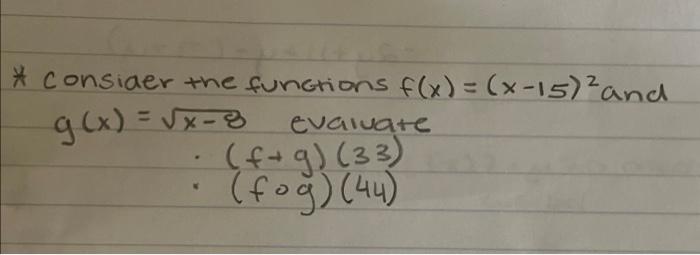 * consider the functions f(x) = (x-15)² and
g(x) = √x-8 evaluate
· (f+g)(33)
· (f∘g)(44)